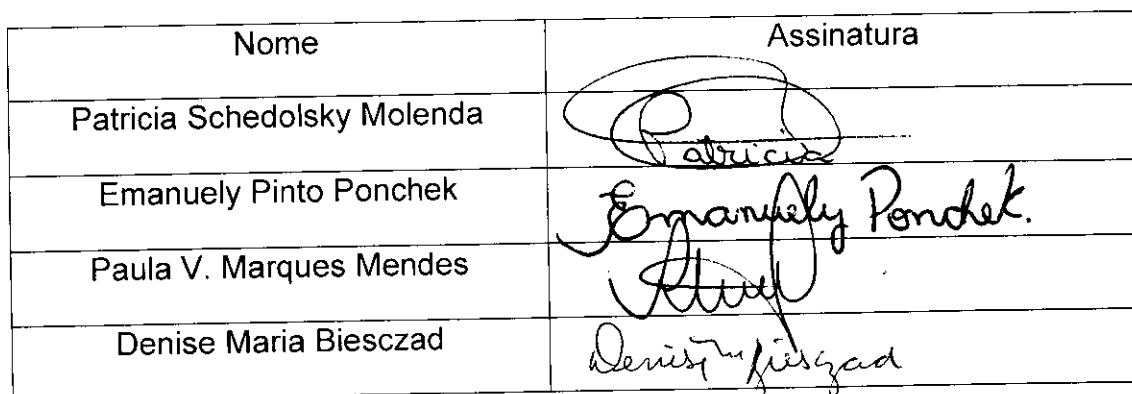 Nome Assinatura
Patricia Schedolsky Molenda Patricia
Emanuely Pinto Ponchek Emanuely Ponchek.
Paula V. Marques Mendes
Denise Maria Biesczad Denise Mª Biesczad